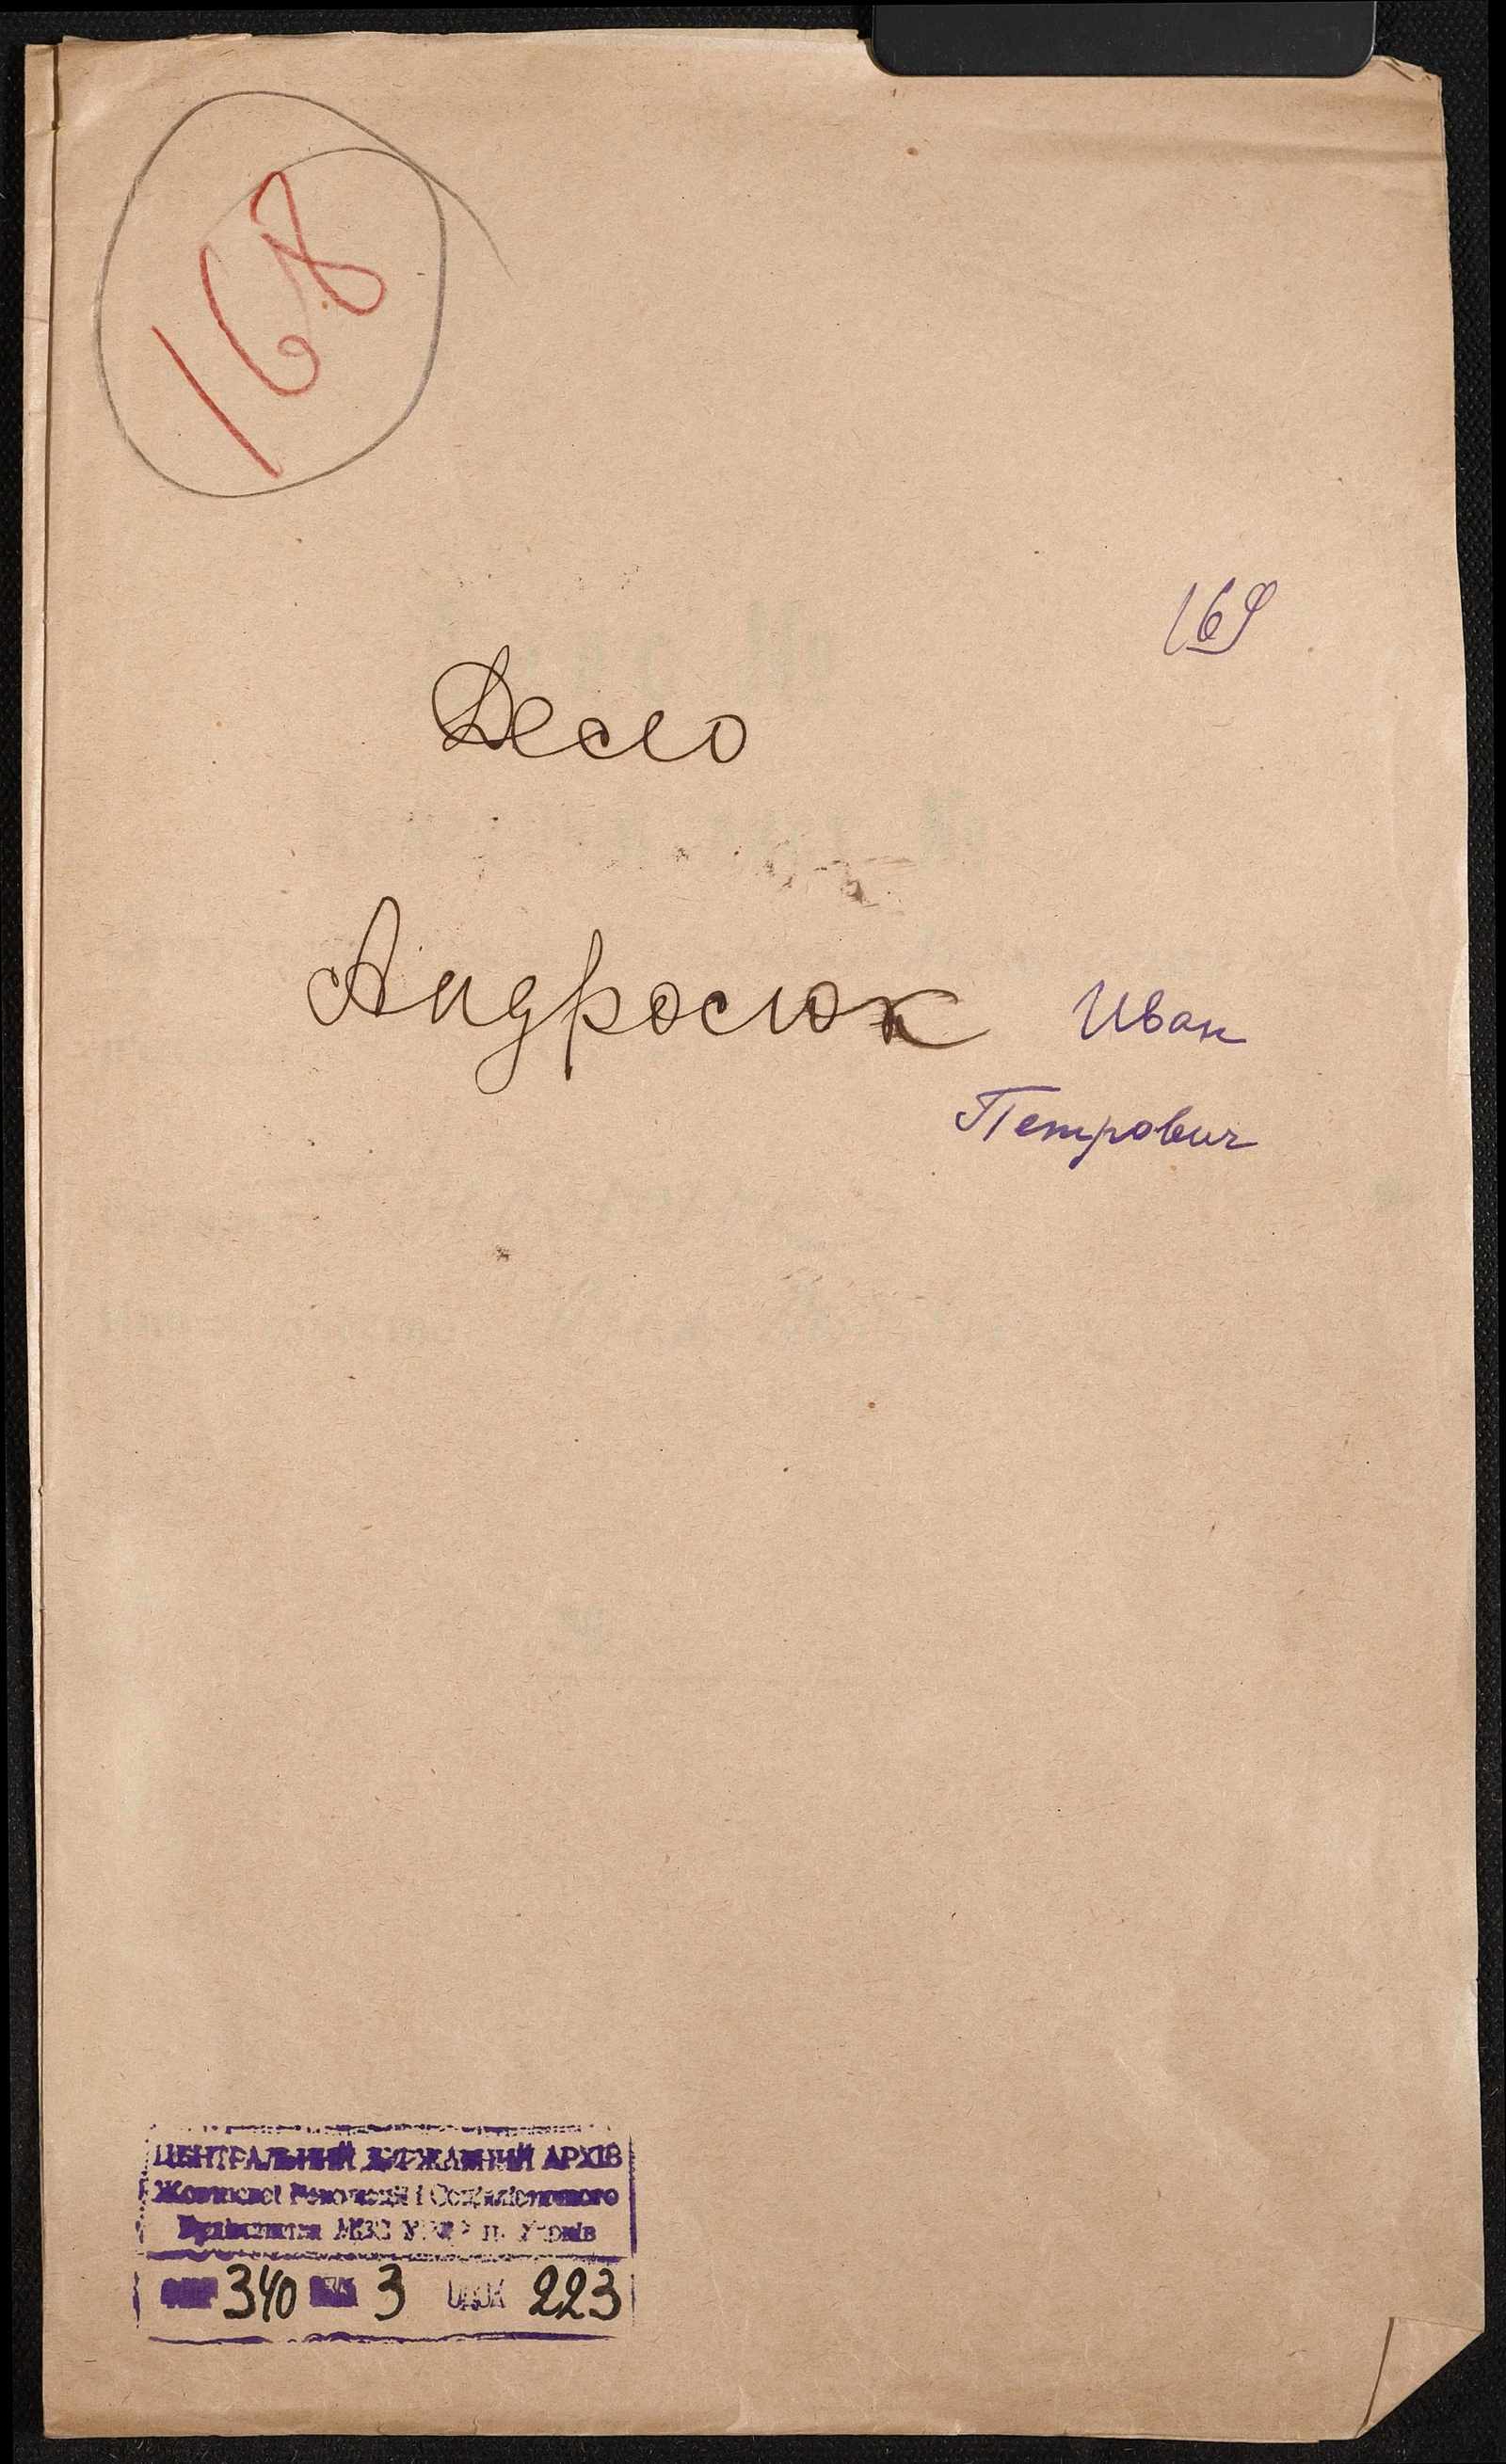 168
169
Дело
Андросюк Иван
Петрович
ЦЕНТРАЛЬНИЙ ДЕРЖАВНИЙ АРХІВ
Жовтневої Революції і Соціалістичного
Будівництва УРСР м. Харків
340 3 223